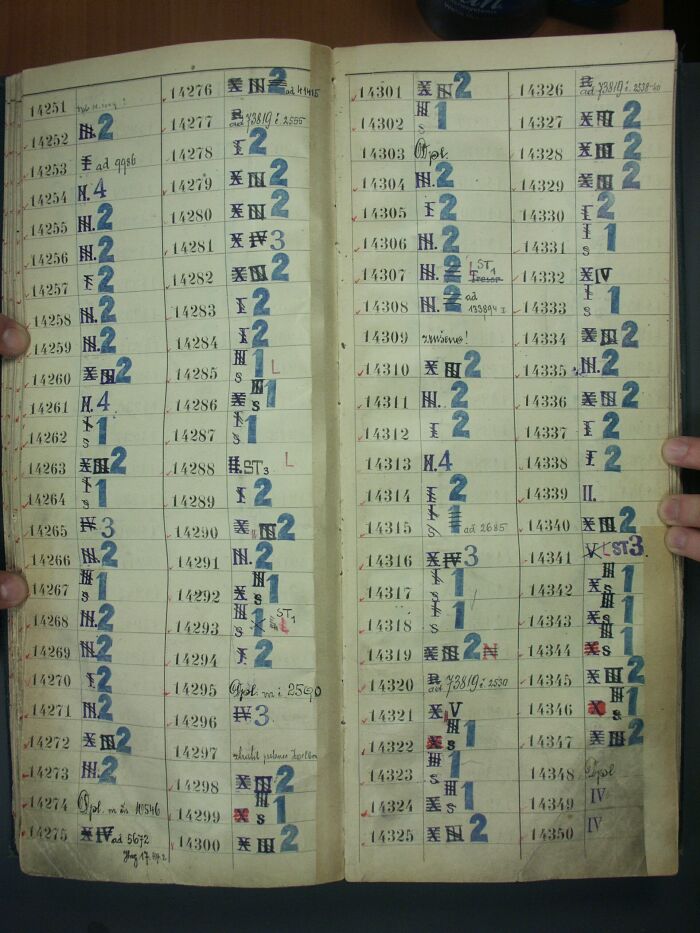 14251
14252 III. 2
14253 I ad 9986
14254 II. 4
14255 III. 2
14256 III. 2
14257 I 2
14258 III. 2
14259 III. 2
14260 X III 2
14261 II. 4
14262 I s 1
14263 X III 2
14264 I s 1
14265 IV 3
14266 III. 2
14267 III s 1
14268 III. 2
14269 III. 2
14270 I 2
14271 III. 2
14272 X III 2
14273 III. 2
14274 Dpl. m
14275 X IV ad 5672
14276 X III 2
14277 ad 73819 i. 2555
14278 I 2
14279 X III 2
14280 X III 2
14281 X IV 3
14282 X III 2
14283 I 2
14284 I 2
14285 III s 1 L
14286 X III s 1
14287 I s 1
14288 II. ST3 L
14289 I 2
14290 X III 2
14291 III. 2
14292 X III s 1
14293 III s 1 ST1 L
14294 I 2
14295 Dpl. m i 2560
14296 IV 3
14297
14298 X III 2
14299 X III s 1
14300 X III 2
14301 X III 2
14302 III s 1
14303 Dpl.
14304 III. 2
14305 I 2
14306 III. 2
14307 III. 2 LST1 Tresor
14308 III. 2 ad 133894 I
14309
14310 X III 2
14311 III. 2
14312 I 2
14313 II. 4
14314 I 2
14315 I 1 ad 2685
14316 X IV 3
14317 I s 1
14318 I s 1
14319 X III 2 N
14320 ad 73819 i. 2530
14321 X V
14322 X III s 1
14323 III s 1
14324 X III s 1
14325 X III 2
14326 ad 73819 i. 2538-40
14327 X III 2
14328 X III 2
14329 X III 2
14330 I 2
14331 I s 1
14332 X IV
14333 I s 1
14334 X III 2
14335 III. 2
14336 X III 2
14337 I 2
14338 I 2
14339 II.
14340 X III 2
14341 V LST3.
14342 X III s 1
14343 X III s 1
14344 X III s 1
14345 X III 2
14346 X III s 1
14347 X III 2
14348 Dpl
14349 IV
14350 IV